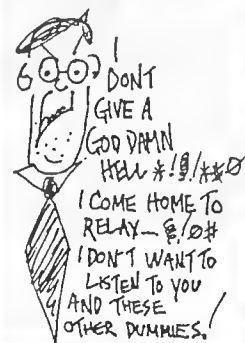 I
DONT
GIVE A
GOD DAMN
HELL *!§!/**Ø
I COME HOME TO
RELAX— §!/Ø#
I DON'T WANT TO
LISTEN TO YOU
AND THESE
OTHER DUMMIES.!